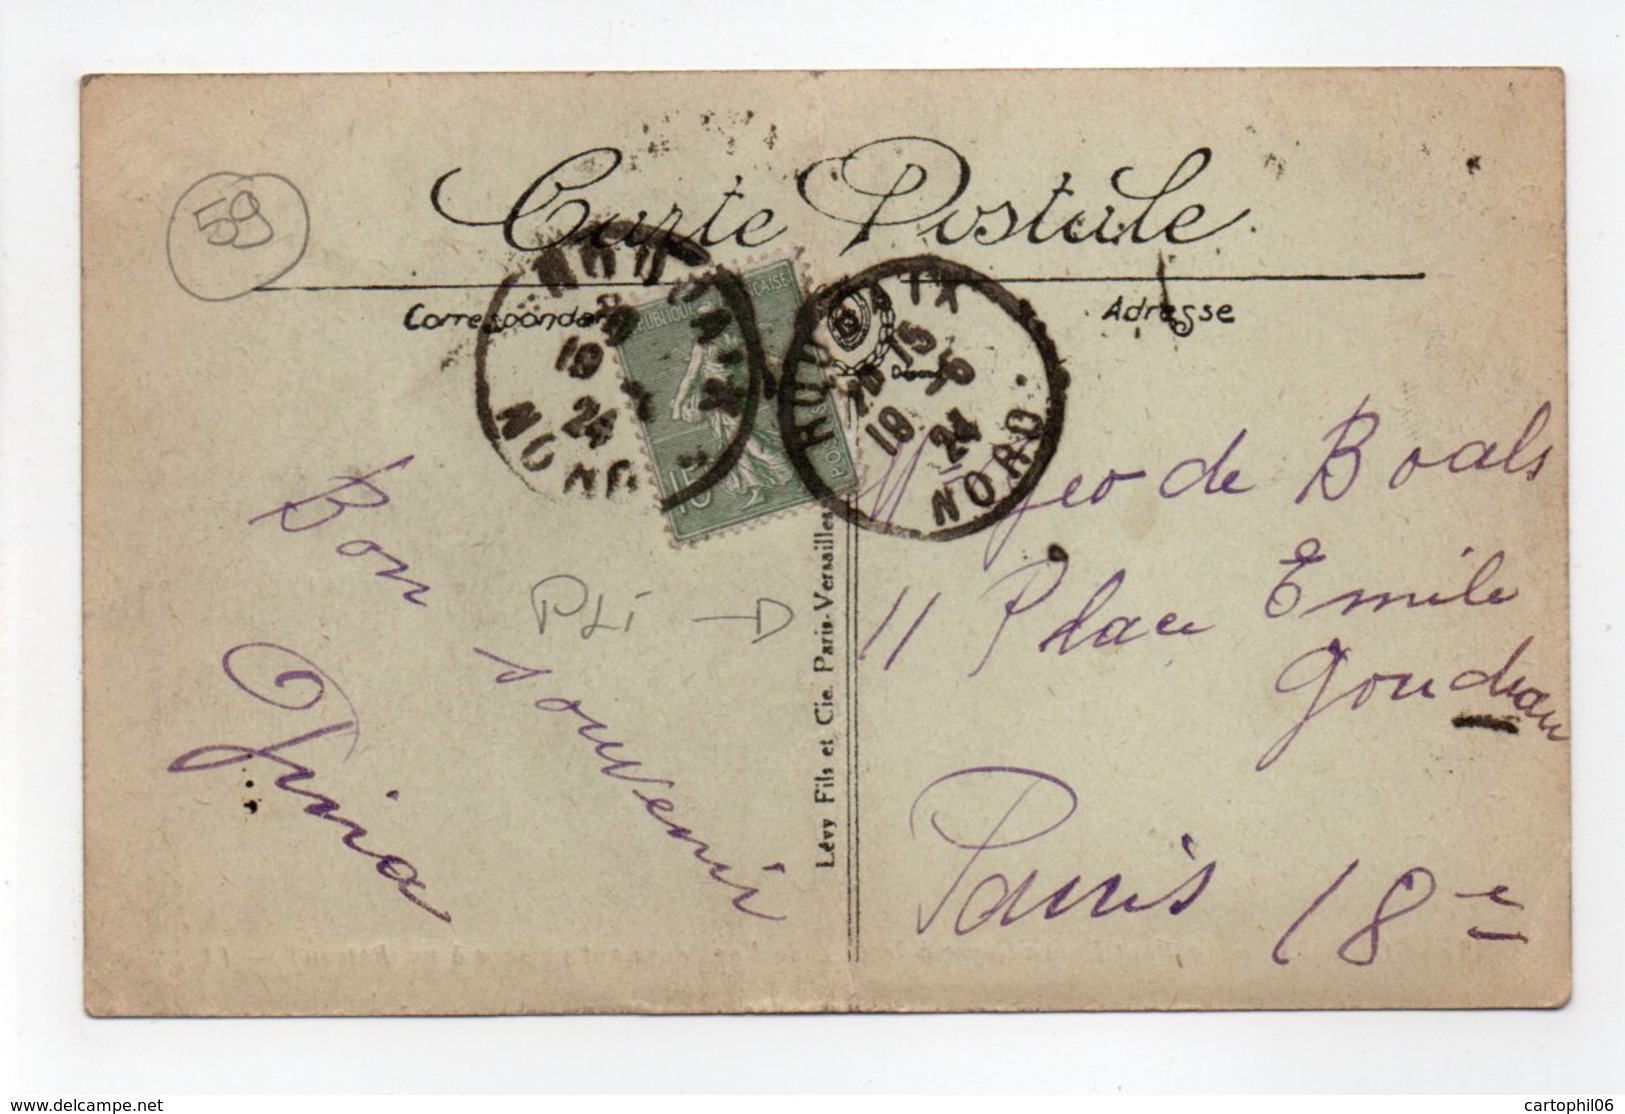 59
Carte Postale
Correspondance
Adresse
RÉPUBLIQUE FRANÇAISE
POSTES
15
ROUBAIX
19
24
NORD
ROUBAIX
20 15
19 -6
24
NORD
Bon
souvenir
PLi → 
Lévy Fils et Cie. Paris-Versailles
Geo de Boals
11 Place Emile
Goudeau
Paris 18e
www.delcampe.net
cartophil06